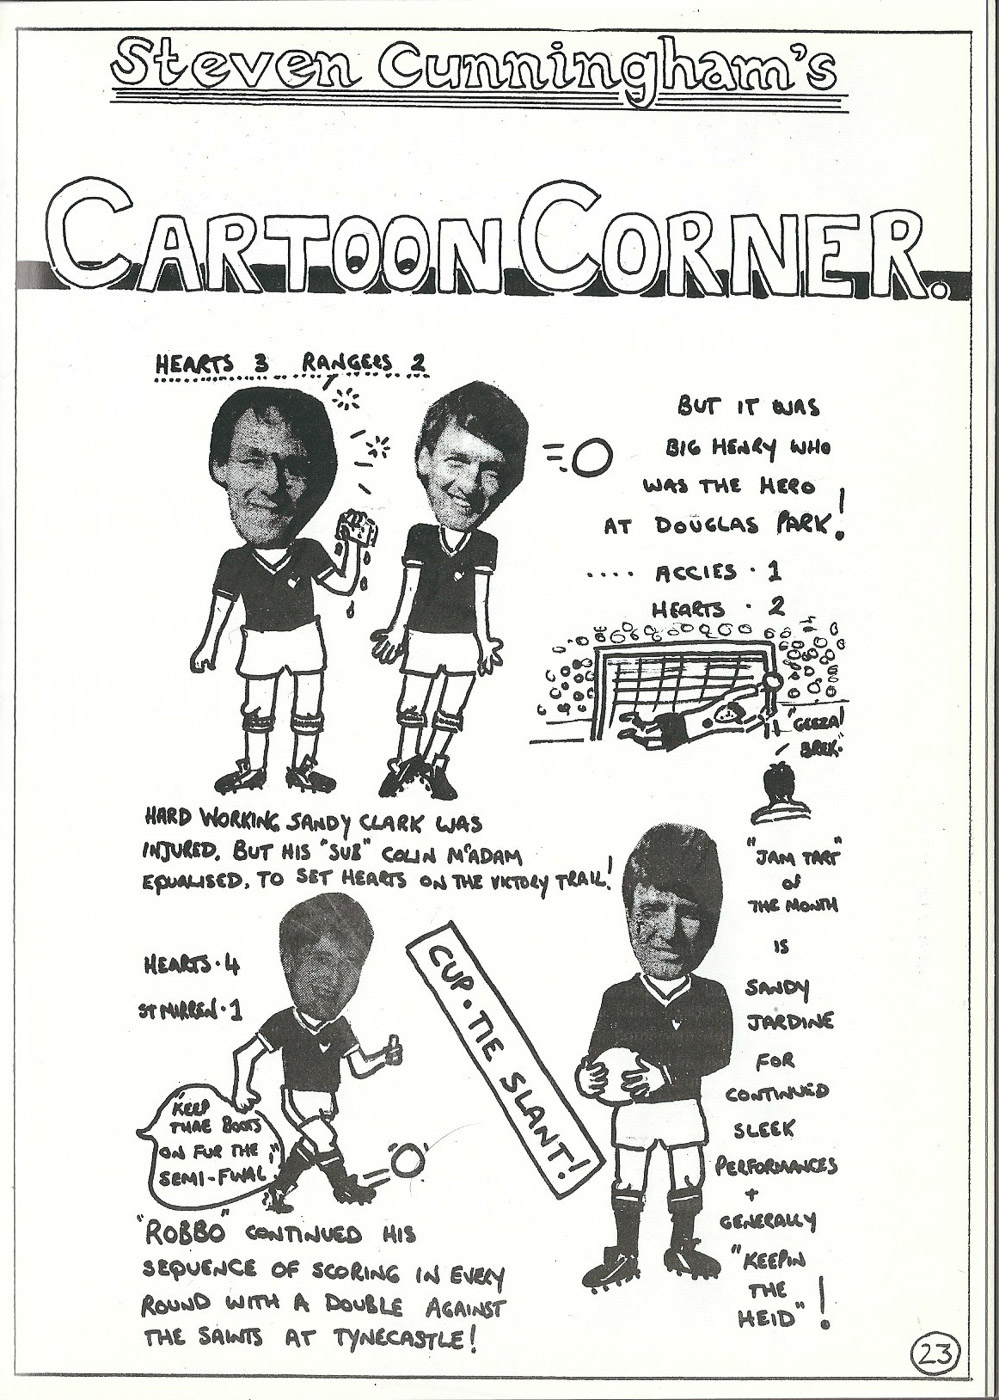 Steven Cunningham's
CARTOON CORNER.
HEARTS 3 RANGERS 2
HARD WORKING SANDY CLARK WAS
INJURED, BUT HIS "SUB" COLIN McADAM
EQUALISED, TO SET HEARTS ON THE VICTORY TRAIL!
BUT IT WAS
BIG HENRY WHO
WAS THE HERO
AT DOUGLAS PARK!
.... ACCIES · 1
HEARTS · 2
"GEEZA!
BREK."
HEARTS · 4
ST MIRREN · 1
"KEEP
THAE BOOTS
ON FUR THE
SEMI-FINAL!"
"ROBBO" CONTINUED HIS
SEQUENCE OF SCORING IN EVERY
ROUND WITH A DOUBLE AGAINST
THE SAINTS AT TYNECASTLE!
CUP·TIE SLANT!
"JAM TART"
of
THE MONTH
IS
SANDY
JARDINE
FOR
CONTINUED
SLEEK
PERFORMANCES
+
GENERALLY
"KEEPIN
THE
HEID"!
23